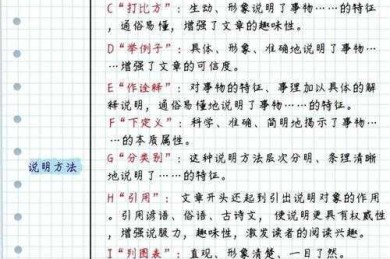 C“打比方”：生动、形象说明了事物……的特征
，通俗易懂，增强了文章的趣味性。
D“举例子”：具体、形象、准确地说明了事物…
…增强了文章的可信度。
E“作诠释”：对事物的特征、事理加以具体的解
释说明，通俗易懂地说明了……的特征。
F“下定义”：科学、准确、简明地揭示了事物…
…的本质属性。
G“分类别”：这种说明方法层次分明、条理清晰
地说明了……的特征。
说明方法
H“引用”：文章开头还起到引出说明对象的作用
。引用谚语、俗语、古诗文，使说明更具有权威性
，增强说服力，趣味性，激发读者的阅读兴趣。
I“列图表”：直观、形象清楚、一目了然。